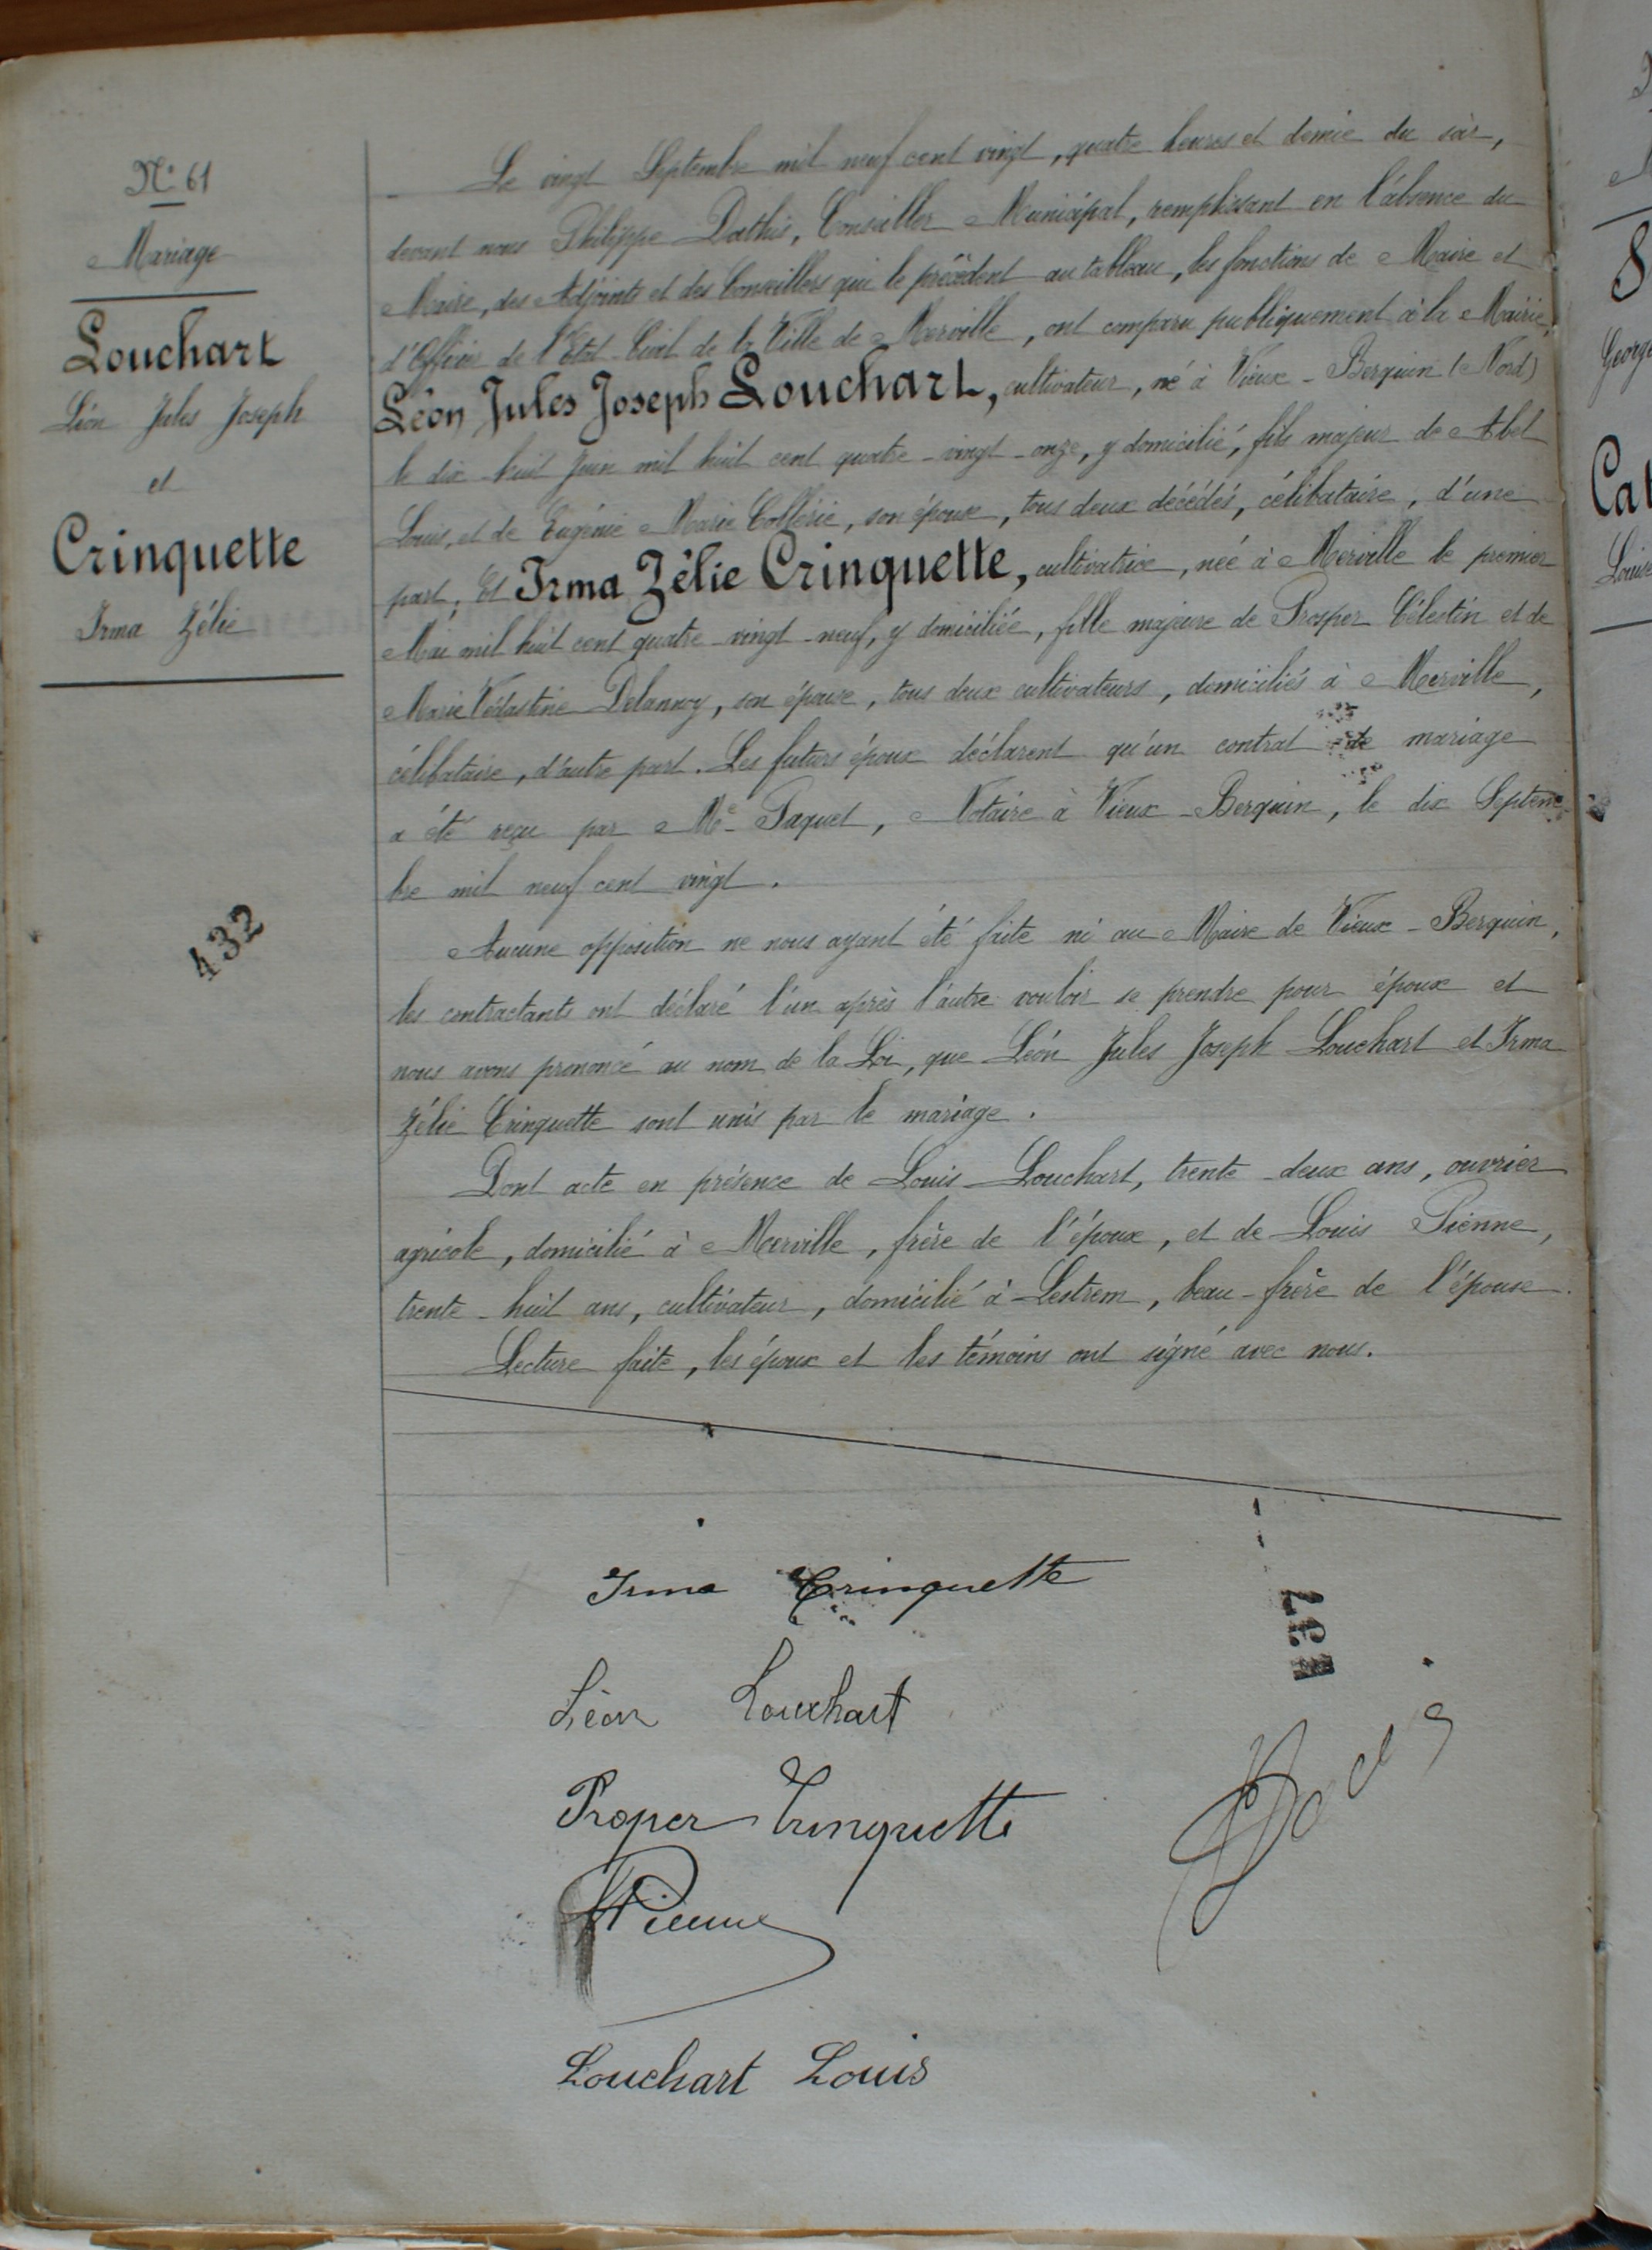 N° 61
Mariage
Louchart
Léon Jules Joseph
et
Crinquette
Irma Zélie
432
Le vingt Septembre mil neuf cent vingt, quatre heures et demie du soir,
devant nous Philippe Dathis, Conseiller Municipal, remplissant en l'absence du
Maire, des Adjoints et des Conseillers qui le précèdent au tableau, les fonctions de Maire et
d'Officier de l'Etat-Civil de la Ville de Merville, ont comparu publiquement à la Mairie,
Léon Jules Joseph Louchart, cultivateur, né à Vieux-Berquin (Nord)
le dix-huit Juin mil huit cent quatre-vingt-onze, y domicilié, fils majeur de Abel
Louis, et de Eugénie Marie Collerie, son épouse, tous deux décédés, célibataire, d'une
part, Et Irma Zélie Crinquette, cultivatrice, née à Merville le premier
Mai mil huit cent quatre-vingt-neuf, y domiciliée, fille majeure de Prosper Célestin et de
Marie Védastine Delannoy, son épouse, tous deux cultivateurs, domiciliés à Merville,
célibataire, d'autre part. Les futurs époux déclarent qu'un contrat de mariage
a été reçu par Me Paquet, Notaire à Vieux-Berquin, le dix Septem-
bre mil neuf cent vingt.
Aucune opposition ne nous ayant été faite ni au Maire de Vieux-Berquin,
les contractants ont déclaré l'un après l'autre vouloir se prendre pour époux et
nous avons prononcé au nom de la Loi, que Léon Jules Joseph Louchart et Irma
Zélie Crinquette sont unis par le mariage.
Dont acte en présence de Louis Louchart, trente-deux ans, ouvrier
agricole, domicilié à Merville, frère de l'époux, et de Louis Pienne,
trente-huit ans, cultivateur, domicilié à Lestrem, beau-frère de l'épouse.
Lecture faite, les époux et les témoins ont signé avec nous.
Irma Crinquette
Léon Louchart
Proper Crinquette
Pienne
Louchart Louis